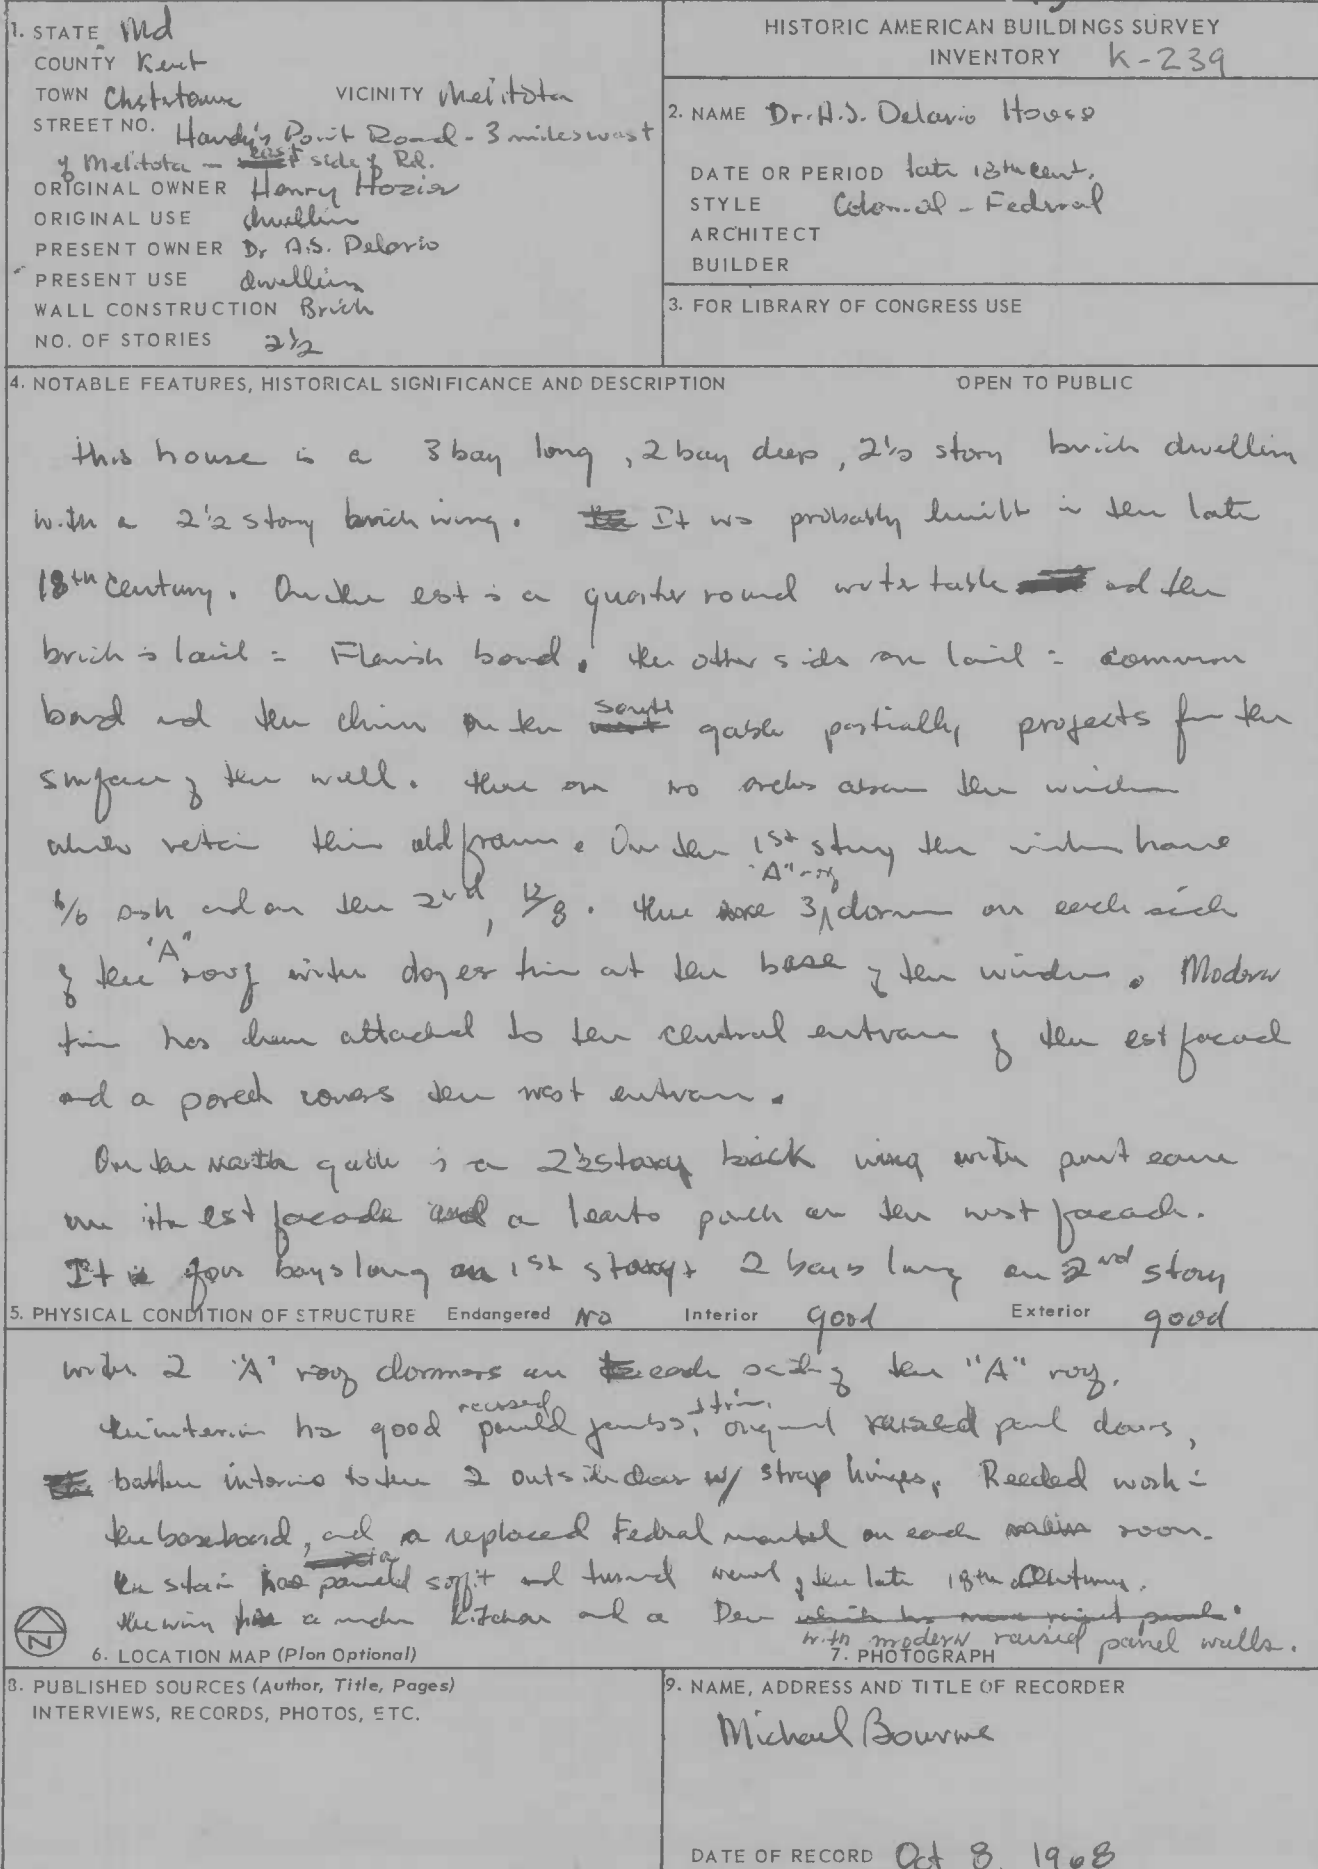 1. STATE Md
COUNTY Kent
TOWN VICINITY Melitota
STREET NO. Handy's Point Road - 3 miles west
of Melitota - east side of Rd.
ORIGINAL OWNER Henry Hozier
ORIGINAL USE dwellin
PRESENT OWNER Dr A.S. Delario
PRESENT USE dwelling
WALL CONSTRUCTION Brick
NO. OF STORIES 2 1/2
HISTORIC AMERICAN BUILDINGS SURVEY
INVENTORY K-239
2. NAME Dr. A.S. Delario House
DATE OR PERIOD late 18th cent.
STYLE Colonial - Federal
ARCHITECT
BUILDER
3. FOR LIBRARY OF CONGRESS USE
4. NOTABLE FEATURES, HISTORICAL SIGNIFICANCE AND DESCRIPTION OPEN TO PUBLIC
this house is a 3 bay long, 2 bay deep, 2 1/2 story brick dwelling
with a 2 1/2 story brick wing. It was probably built in the late
18th century. On the east is a quarter round watertable and the
brick is laid in Flemish bond. the other sides are laid in common
bond and the chimney on the south gable partially projects from the
surface of the wall. there are no arches above the windows
which retain their old frame. On the 1st story the windows have
6/6 sash and on the 2nd, 12/8. there are 3 "A" roof dormers on each side
of the "A" roof with trim at the base of the windows. Modern
trim has been attached to the central entrance of the east facade
and a porch covers the west entrance.
On the north gable is a 2 1/2 story brick wing with pent eave
on its east facade and a leanto porch on the west facade.
It is four bays long on 1st story + 2 bays long on 2nd story
5. PHYSICAL CONDITION OF STRUCTURE Endangered No Interior good Exterior good
with 2 "A" roof dormers on each side of the "A" roof.
the interior has good raised paneled jambs, + trim, original raised panel doors,
batten interior to the 2 outside doors w/ strap hinges. Reeded work in
the baseboard, and a replaced Federal mantel on each room.
the stair has paneled soffit and turned newel of the late 18th century.
the wing has a modern kitchen and a Den
with modern raised panel walls.
N
6. LOCATION MAP (Plan Optional) 7. PHOTOGRAPH
8. PUBLISHED SOURCES (Author, Title, Pages)
INTERVIEWS, RECORDS, PHOTOS, ETC.
9. NAME, ADDRESS AND TITLE OF RECORDER
Michael Bourne
DATE OF RECORD Oct 8, 1968